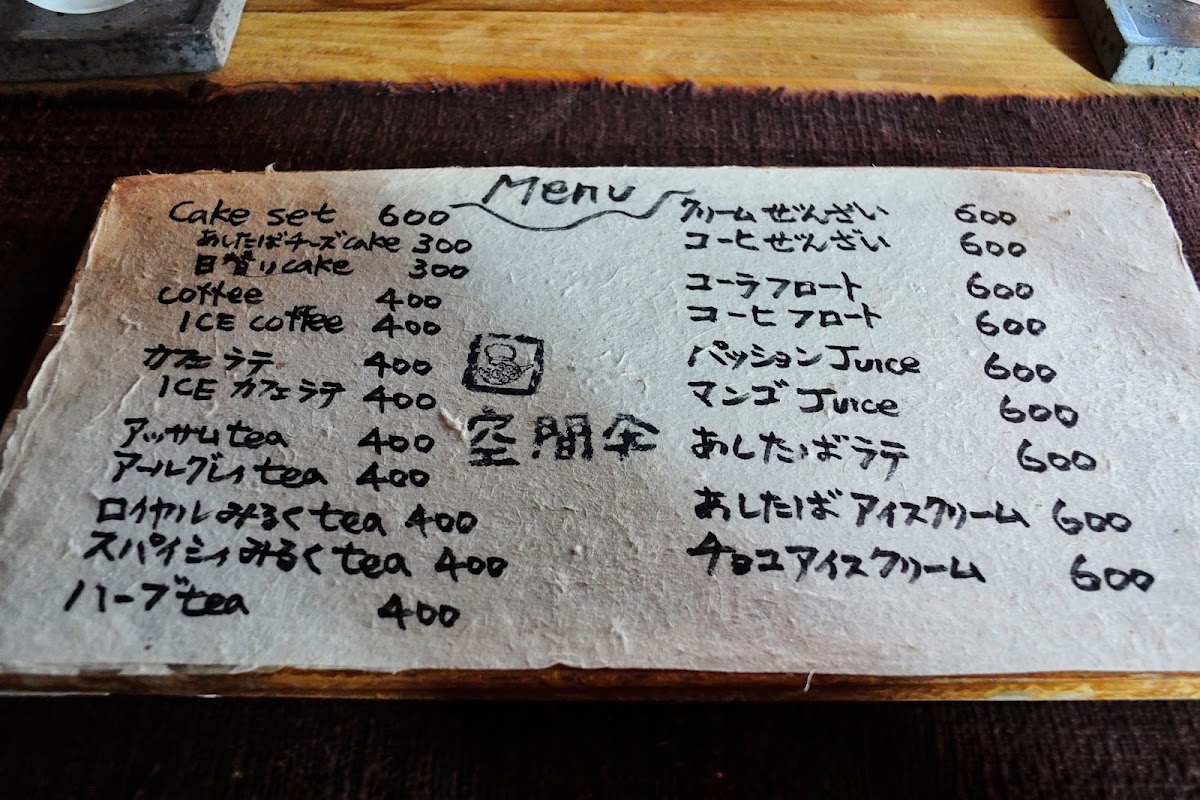 Menu
Cake set 600
あしたばチーズcake 300
日替りcake 300
coffee 400
ICE coffee 400
カフェラテ 400
ICE カフェラテ 400
アッサムtea 400
アールグレイtea 400
ロイヤルみるくtea 400
スパイシィみるくtea 400
ハーブtea 400
空間傘
クリームぜんざい 600
コーヒぜんざい 600
コーラフロート 600
コーヒフロート 600
パッションJuice 600
マンゴJuice 600
あしたばラテ 600
あしたばアイスクリーム 600
チョコアイスクリーム 600